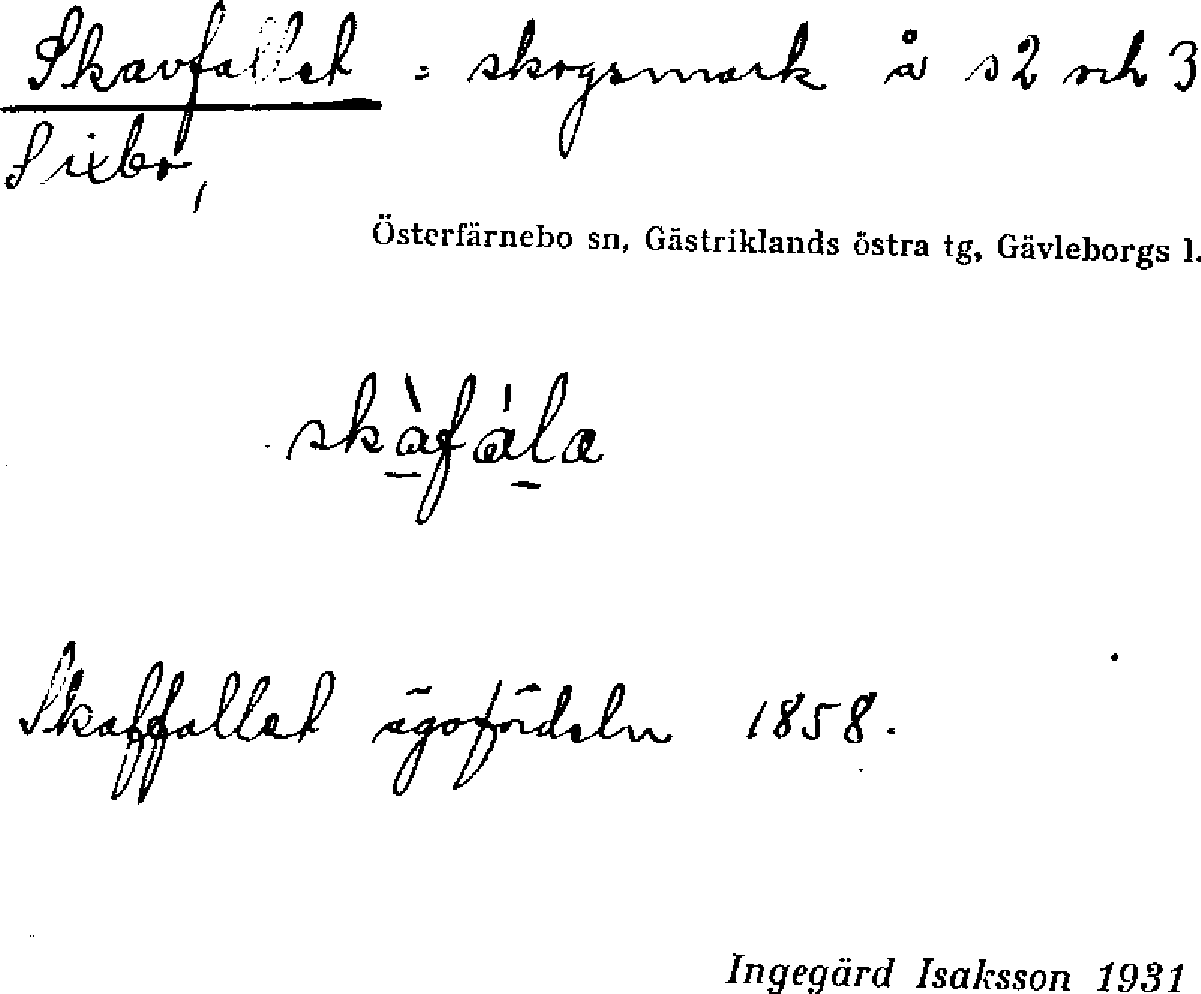 Skavfallet = skogsmark å s2 och 3
Sixbo,
Österfärnebo sn, Gästriklands östra tg, Gävleborgs l.
skàfála
Skaffallet ägofördeln 1858.
Ingegärd Isaksson 1931